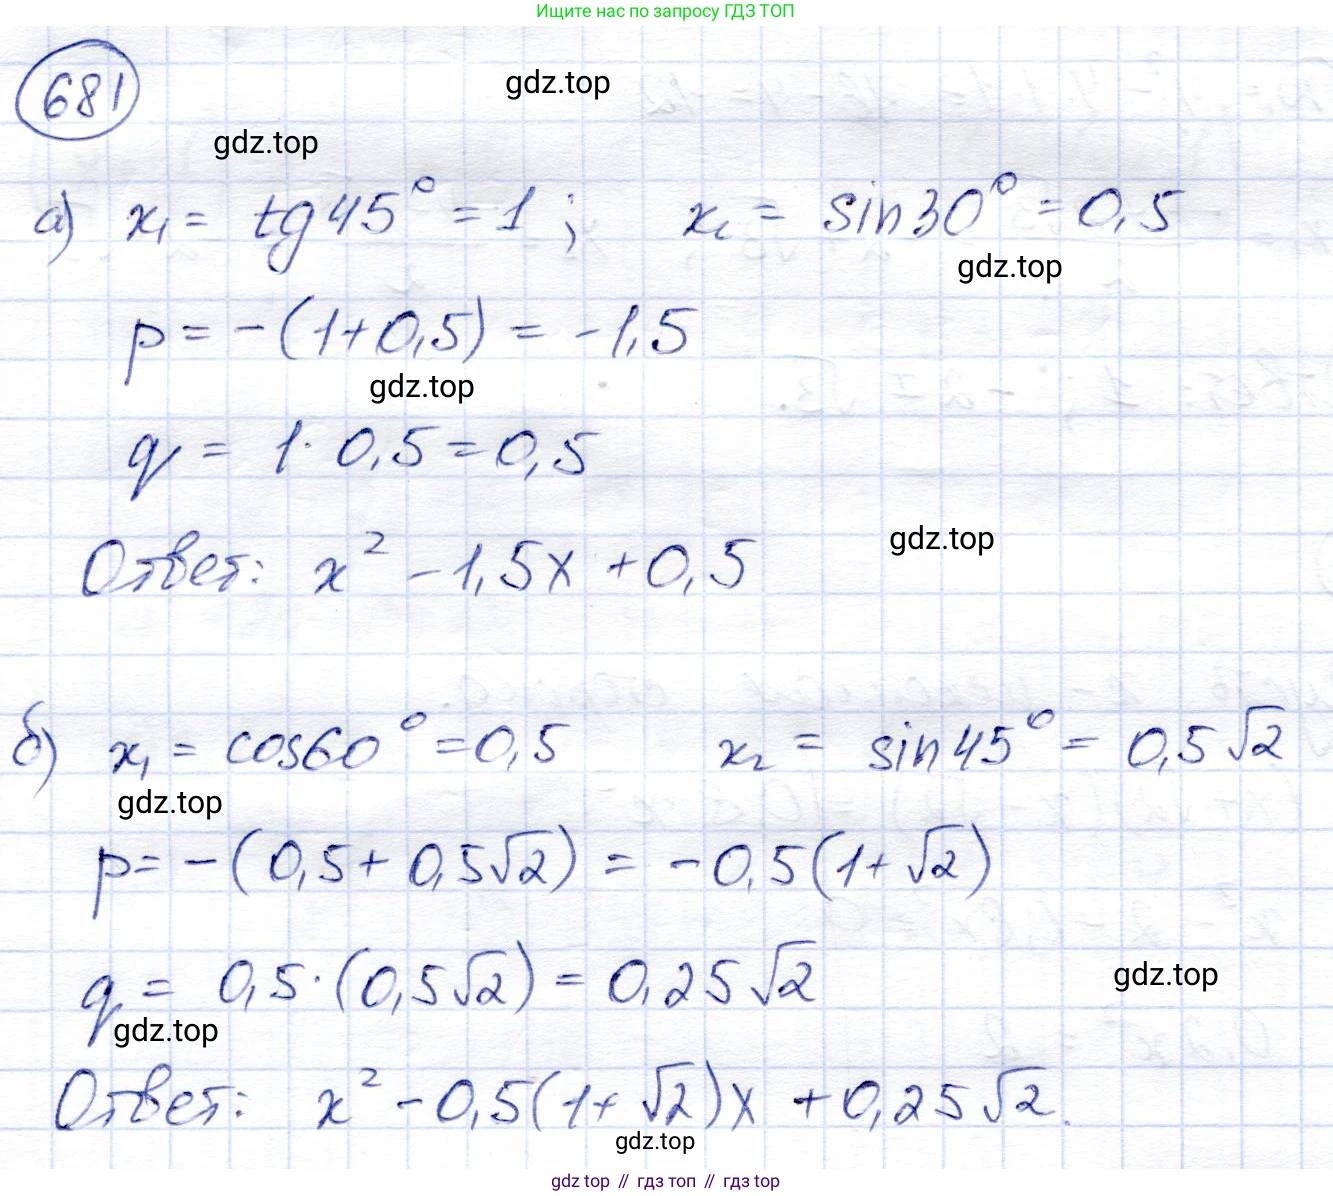 Ищите нас по запросу ГДЗ ТОП
681
gdz.top
gdz.top
а) x₁ = tg45° = 1 ; x₂ = sin30° = 0,5
gdz.top
p = -(1+0,5) = -1,5
gdz.top
q = 1·0,5=0,5
gdz.top
Ответ: x² -1,5x +0,5
б) x₁ = cos60° =0,5 x₂ = sin45° = 0,5√2
gdz.top
p= -(0,5+0,5√2) = -0,5(1+√2)
q = 0,5·(0,5√2) = 0,25√2
gdz.top
gdz.top
Ответ: x² -0,5(1+√2)x +0,25√2.
gdz.top
gdz top // гдз топ // gdz top